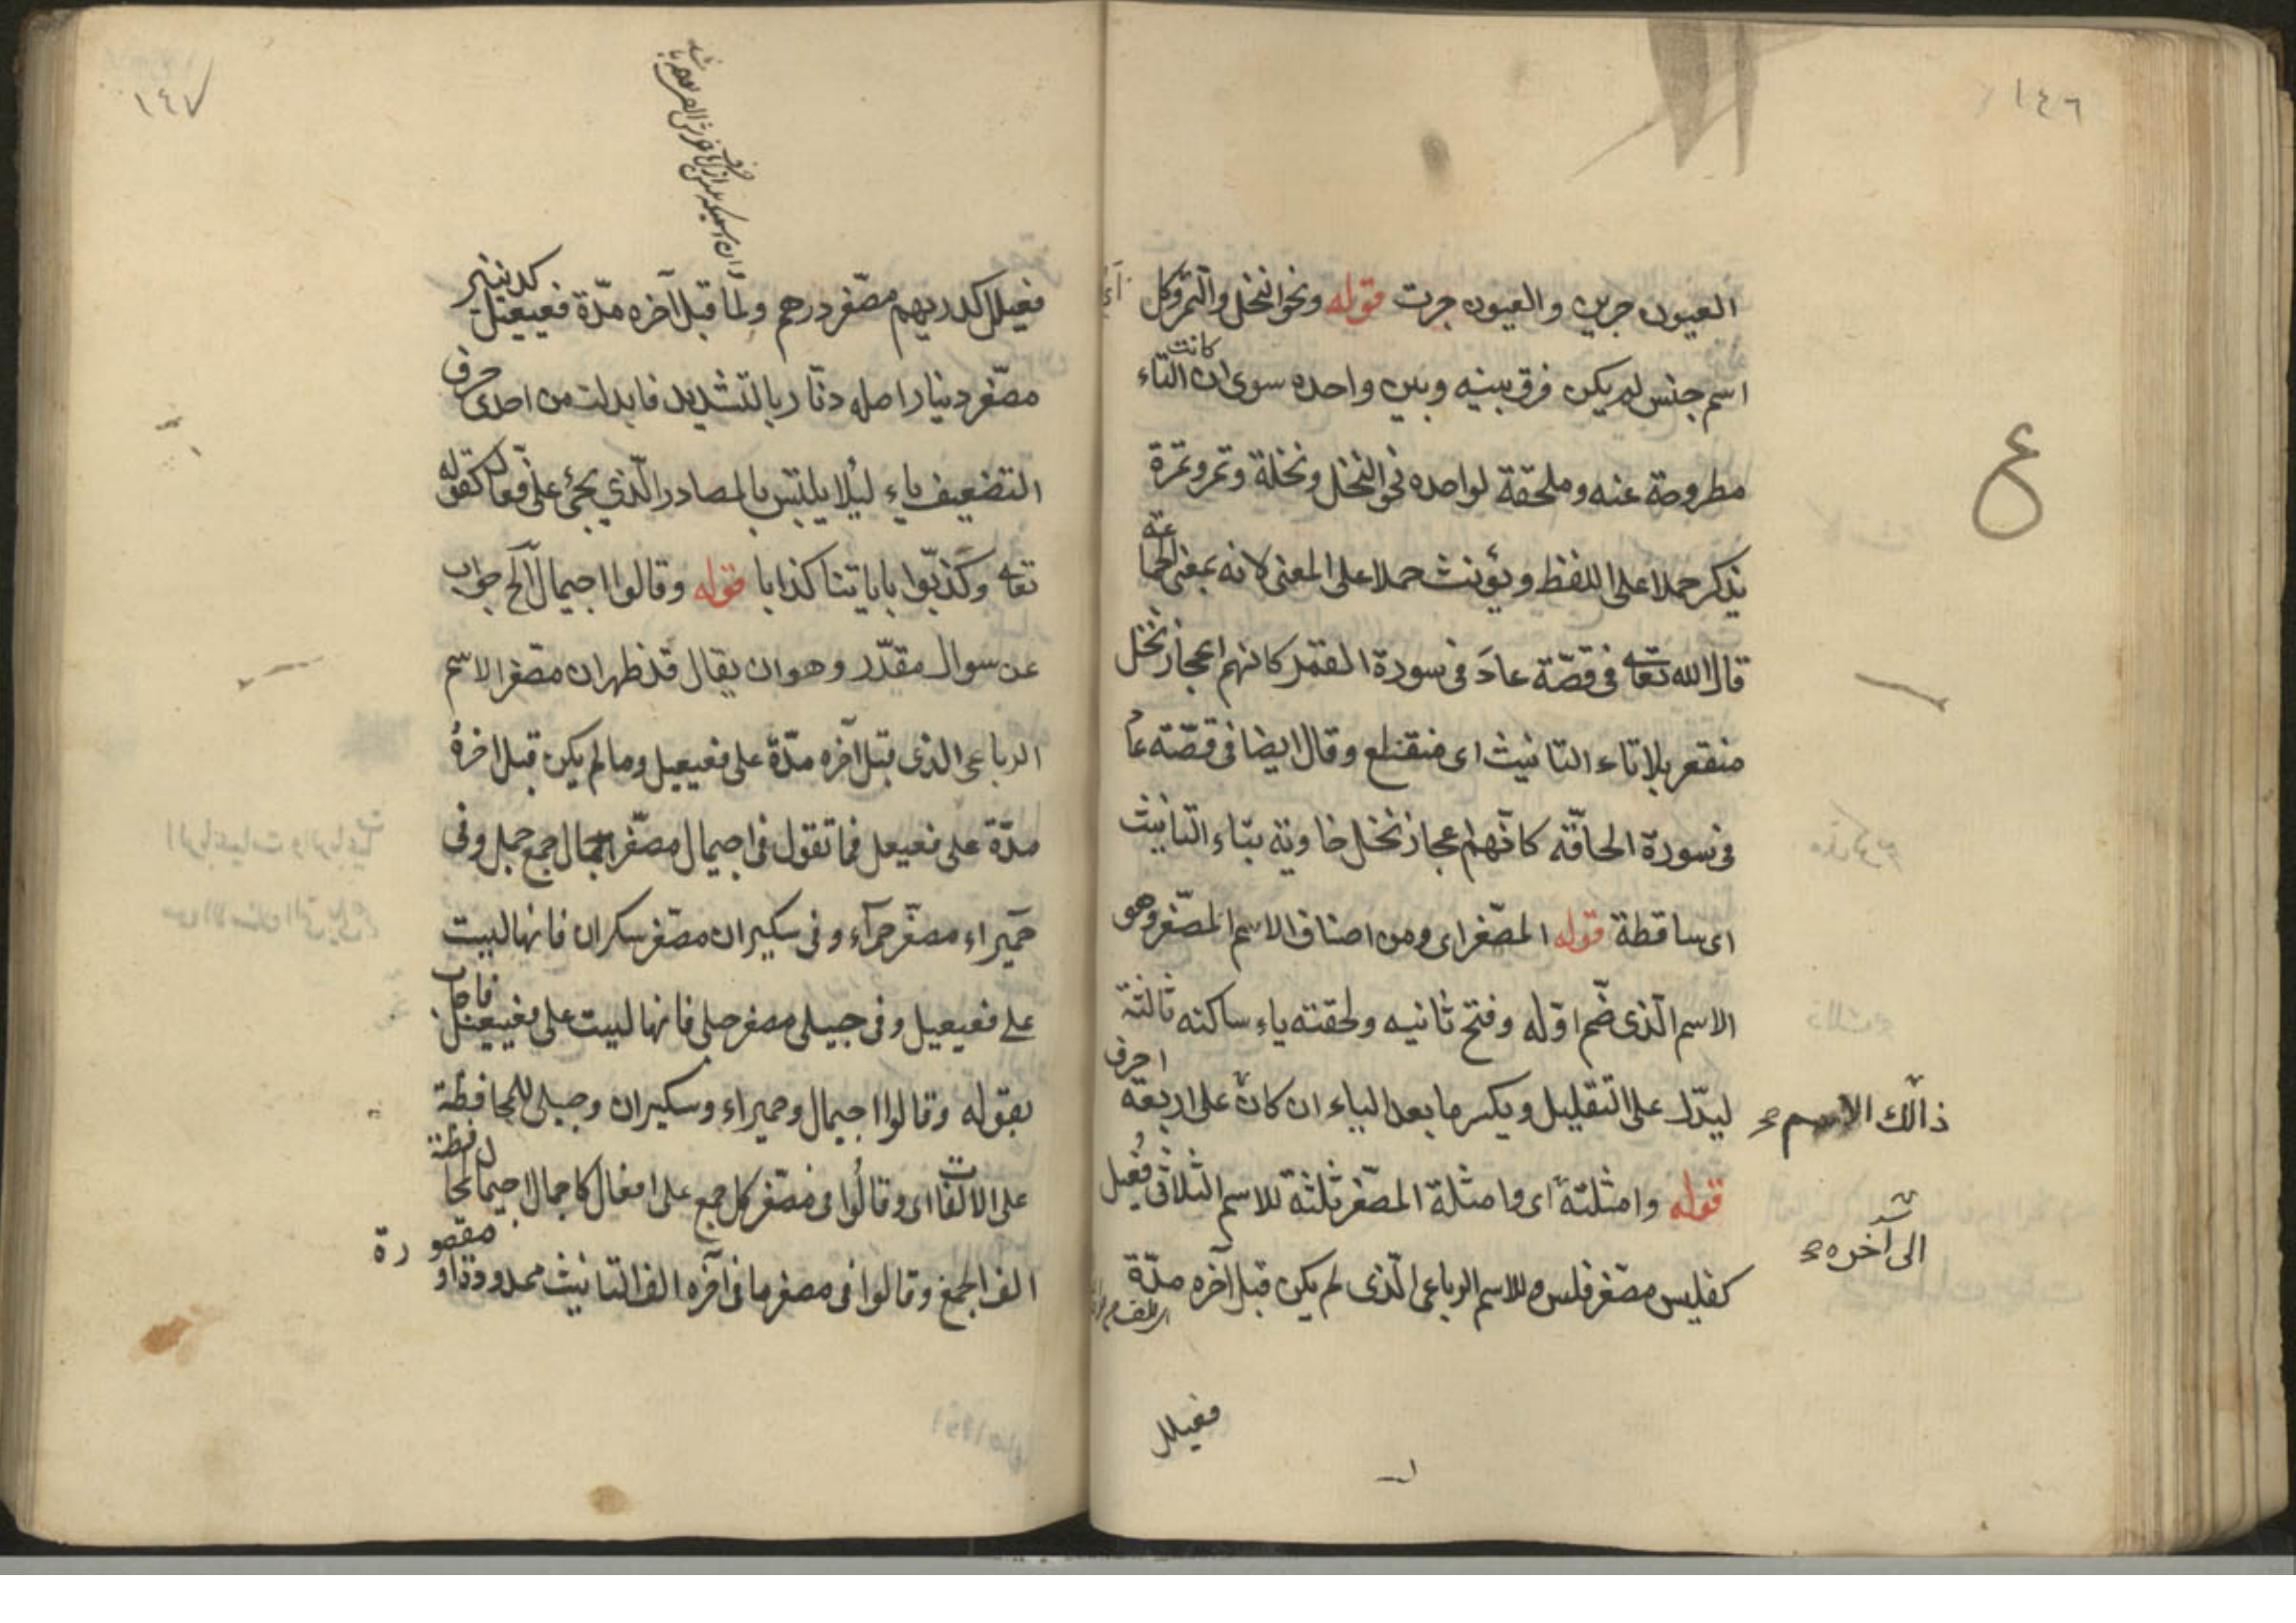 ١٤٦
العيون جرين والعيون جرت قوله ونحو النخل والتمر وكل
اسم جنس لم يكن فرق بينه وبين واحده سوى ان كانت التاء
مطروحة عنه وملحقة لواحده نحو النخل ونخلة وتمر وتمرة
يذكر حملا على اللفظ ويؤنث حملا على المعنى لانه بمعنى الجماعة
قال الله تعالى فى قصّة عاد فى سورة القمر كانهم اعجاز نخل
منقعر بلا تاء التانيث اى منقطع وقال ايضا فى قصّته عاد
فى سورة الحاقّه كانّهم اعجاز نخل خاوية بتاء التانيث
اى ساقطة قوله المصّغر اى ومن اصناف الاسم المصّغر وهو
الاسم الّذى ضّم اوّله وفتح ثانيه ولحقته ياء ساكنه ثالثة
ليدّل على التقليل ويكسر ما بعد الياء ان كان على اربعة احرف
قوله وامثلته اى وامثلة المصّغر ثلثة للاسم الثلاثى فُعيل
كفليس مصّغر فلس وللاسم الرباعى الّذى لم يكن قبل آخره مدّة
ع
ذالك الاسم
الى آخره
فعيلل
١٤٧
فعيلل كدريهم مصّغر درهم ولما قبل آخره مدّة فعيعيل كدنينير
مصّغر دينار اصله دنّار بالتشديد فابدلت من احدى حرف
التضعيف ياء ليُلا يلتبس بالمصادر الّذي يجئ على فعّال كقوله
تعالى وكذّبوا باياتنا كذابا قوله وقالوا اجيمال آلخ جواب
عن سوال مقدّر وهو ان يقال قد ظهر ان مصّغر الاسم
الرباعى الذى قبل آخره مدّة على فعيعيل وما لم يكن قبل اخرهُ
مدّة على فعيعل فما تقول فى اجيمال مصّغر اجمال جمع جمل وفى
حميراء مصّغر حمرآء وفى سكيران مصّغر سكران فانها ليست
على فعيعيل وفى حبيلى مصغر حبلى فانها ليست على فعيعل فاجاب
بقوله وقالوا اجيمال وحميراء وسكيران وحبيلى للمحافظة
على الالفات اى وقالُوا فى مصّغر كل جمع على افعال كاجمال اجيمال لمحافظة
الف الجمع وقالوا فى مصغر ما فى آخره الف التانيث ممدودة او مقصورة